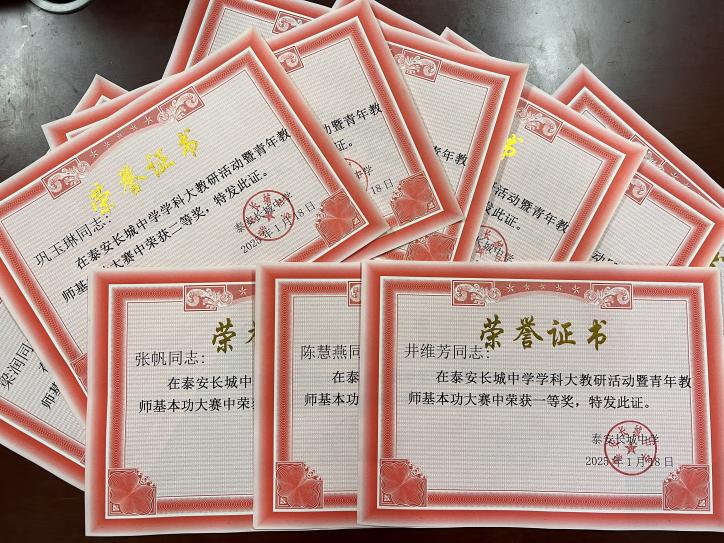 荣誉证书
巩玉琳同志:
在泰安长城中学学科大教研活动暨青年教
师基本功大赛中荣获二等奖，特发此证。
泰安长城中学
2025年1月18日
动暨青年教
发此证。
中学
18日
书
活动暨青年教
特发此证。
长城中学
梁润同
师基
荣
张帆同志:
在泰安长城中
师基本功大赛中荣获
陈慧燕同
在泰安
师基本功大赛
荣誉证书
井维芳同志:
在泰安长城中学学科大教研活动暨青年教
师基本功大赛中荣获一等奖，特发此证。
泰安长城中学
2025年1月18日